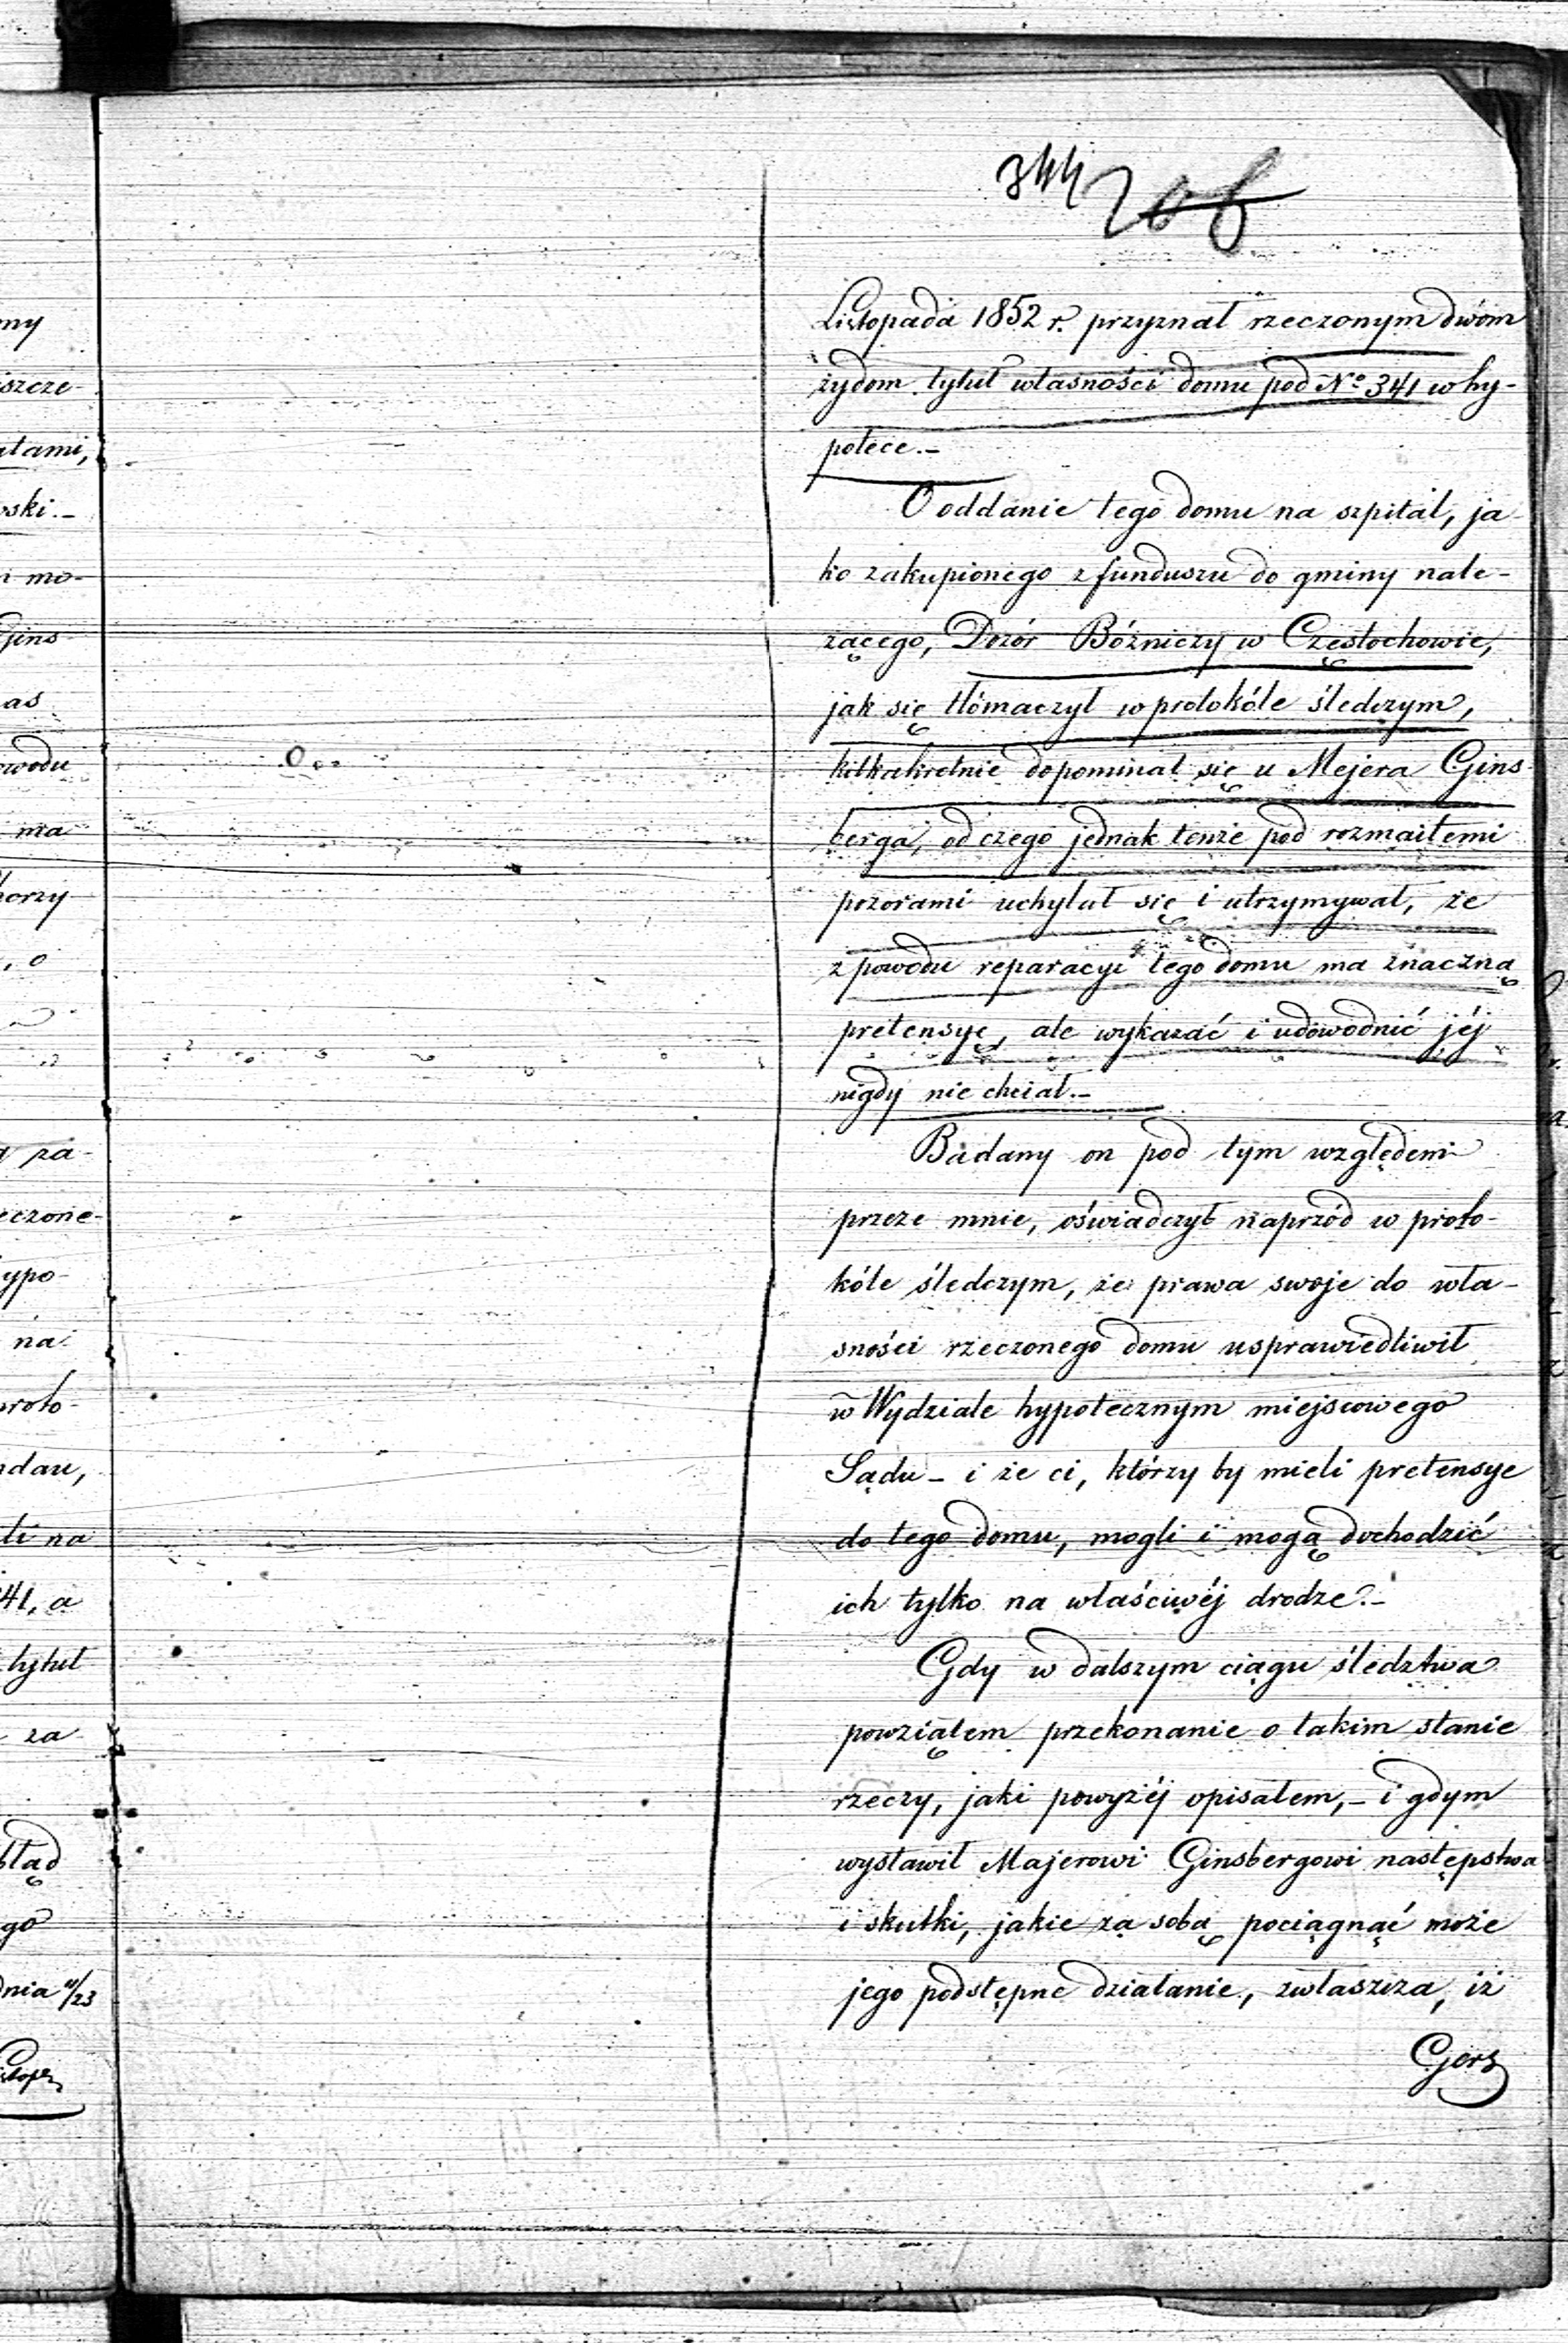 ny
szcze-
atami,
oski.-
i mo-
Gins-
as
owodu
ma
horzy
, o
za-
eczone-
ypo-
na
proto-
ndau,
li na
41, a
tytuł
za
błąd
go
dnia 11/23
Listopa
344 208
Listopada 1852 r. przyznał rzeczonym dwóm
żydom tytuł własności domu pod No 341 w hy-
potece.-
O oddanie tego domu na szpital, ja-
ko zakupionego z funduszu do gminy nale-
żącego, Dozór Bóżniczy w Częstochowie,
jak się tłómaczył w protokóle śledczym,
kilkakrotnie dopominał się u Mejera Gins-
berga, od czego jednak tenże pod rozmaitemi
pozorami uchylał się i utrzymywał, że
z powodu reparacyi tego domu ma znaczną
pretensyę, ale wykazać i udowodnić jéj
nigdy nie chciał.-
Badany on pod tym względem
przeze mnie, oświadczył naprzód w proto-
kóle śledczym, że prawa swoje do wła-
sności rzeczonego domu usprawiedliwił
w Wydziale hypotecznym miejscowego
Sądu - i że ci, którzy by mieli pretensye
do tego domu, mogli i mogą dochodzić
ich tylko na właściwéj drodze.-
Gdy w dalszym ciągu śledztwa
powziąłem przekonanie o takim stanie
rzeczy, jaki powyżéj opisałem,- i gdym
wystawił Majerowi Ginsbergowi następstwa
i skutki, jakie za sobą pociągnąć może
jego podstępne działanie, zwłaszcza, iż